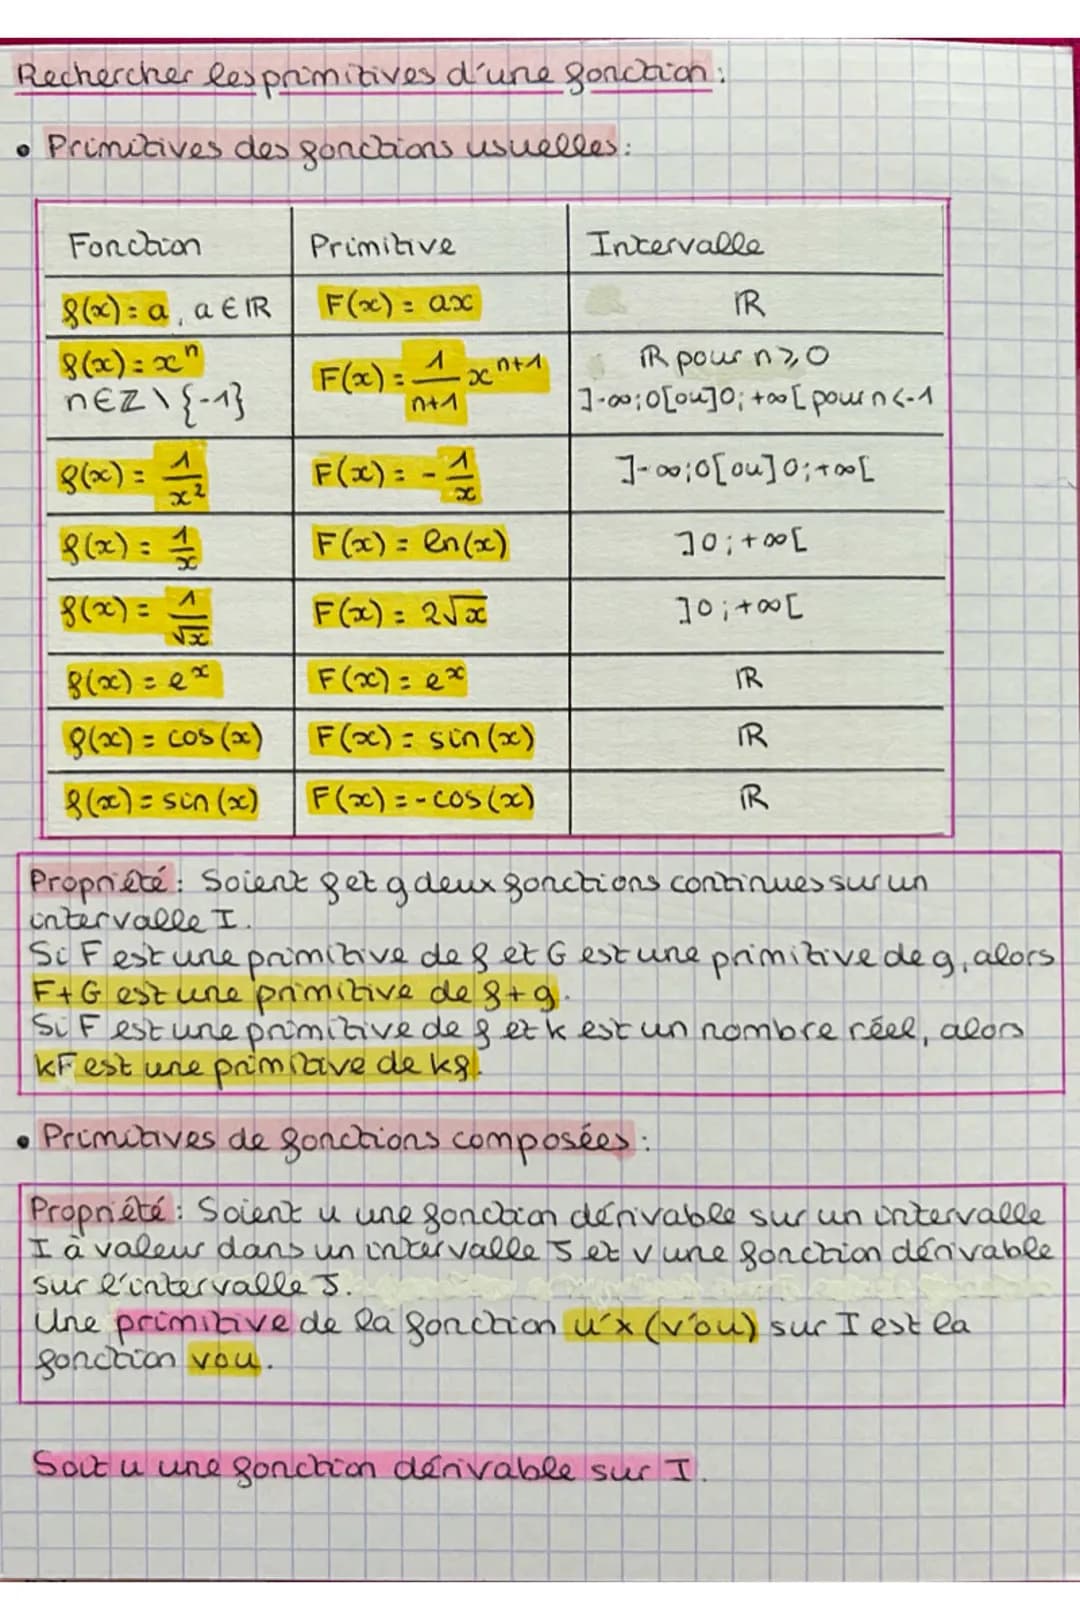 Rechercher les primitives d'une fonction :
• Primitives des fonctions usuelles :
Fonction Primitive Intervalle
f(x) = a, a ∈ ℝ F(x) = ax ℝ
f(x) = xⁿ n ∈ ℤ \ {-1} F(x) = 1/(n+1) xⁿ⁺¹ ℝ pour n ⩾ 0 ]-∞;0[ ou ]0;+∞[ pour n<-1
f(x) = 1/x² F(x) = -1/x ]-∞;0[ ou ]0;+∞[
f(x) = 1/x F(x) = ln(x) ]0;+∞[
f(x) = 1/√x F(x) = 2√x ]0;+∞[
f(x) = eˣ F(x) = eˣ ℝ
f(x) = cos(x) F(x) = sin(x) ℝ
f(x) = sin(x) F(x) = -cos(x) ℝ
Propriété : Soient f et g deux fonctions continues sur un
intervalle I.
Si F est une primitive de f et G est une primitive de g, alors
F+G est une primitive de f+g.
Si F est une primitive de f et k est un nombre réel, alors
kF est une primitive de kf.
• Primitives de fonctions composées :
Propriété : Soient u une fonction dérivable sur un intervalle
I à valeur dans un intervalle J et v une fonction dérivable
sur l'intervalle J.
Une primitive de la fonction u'×(v'ou) sur I est la
fonction vou.
Soit u une fonction dérivable sur I.